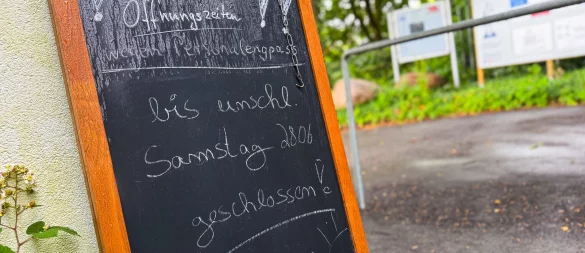 Öffnungszeiten
wegen Personalengpass
bis einschl.
Samstag 28.06
geschlossen!